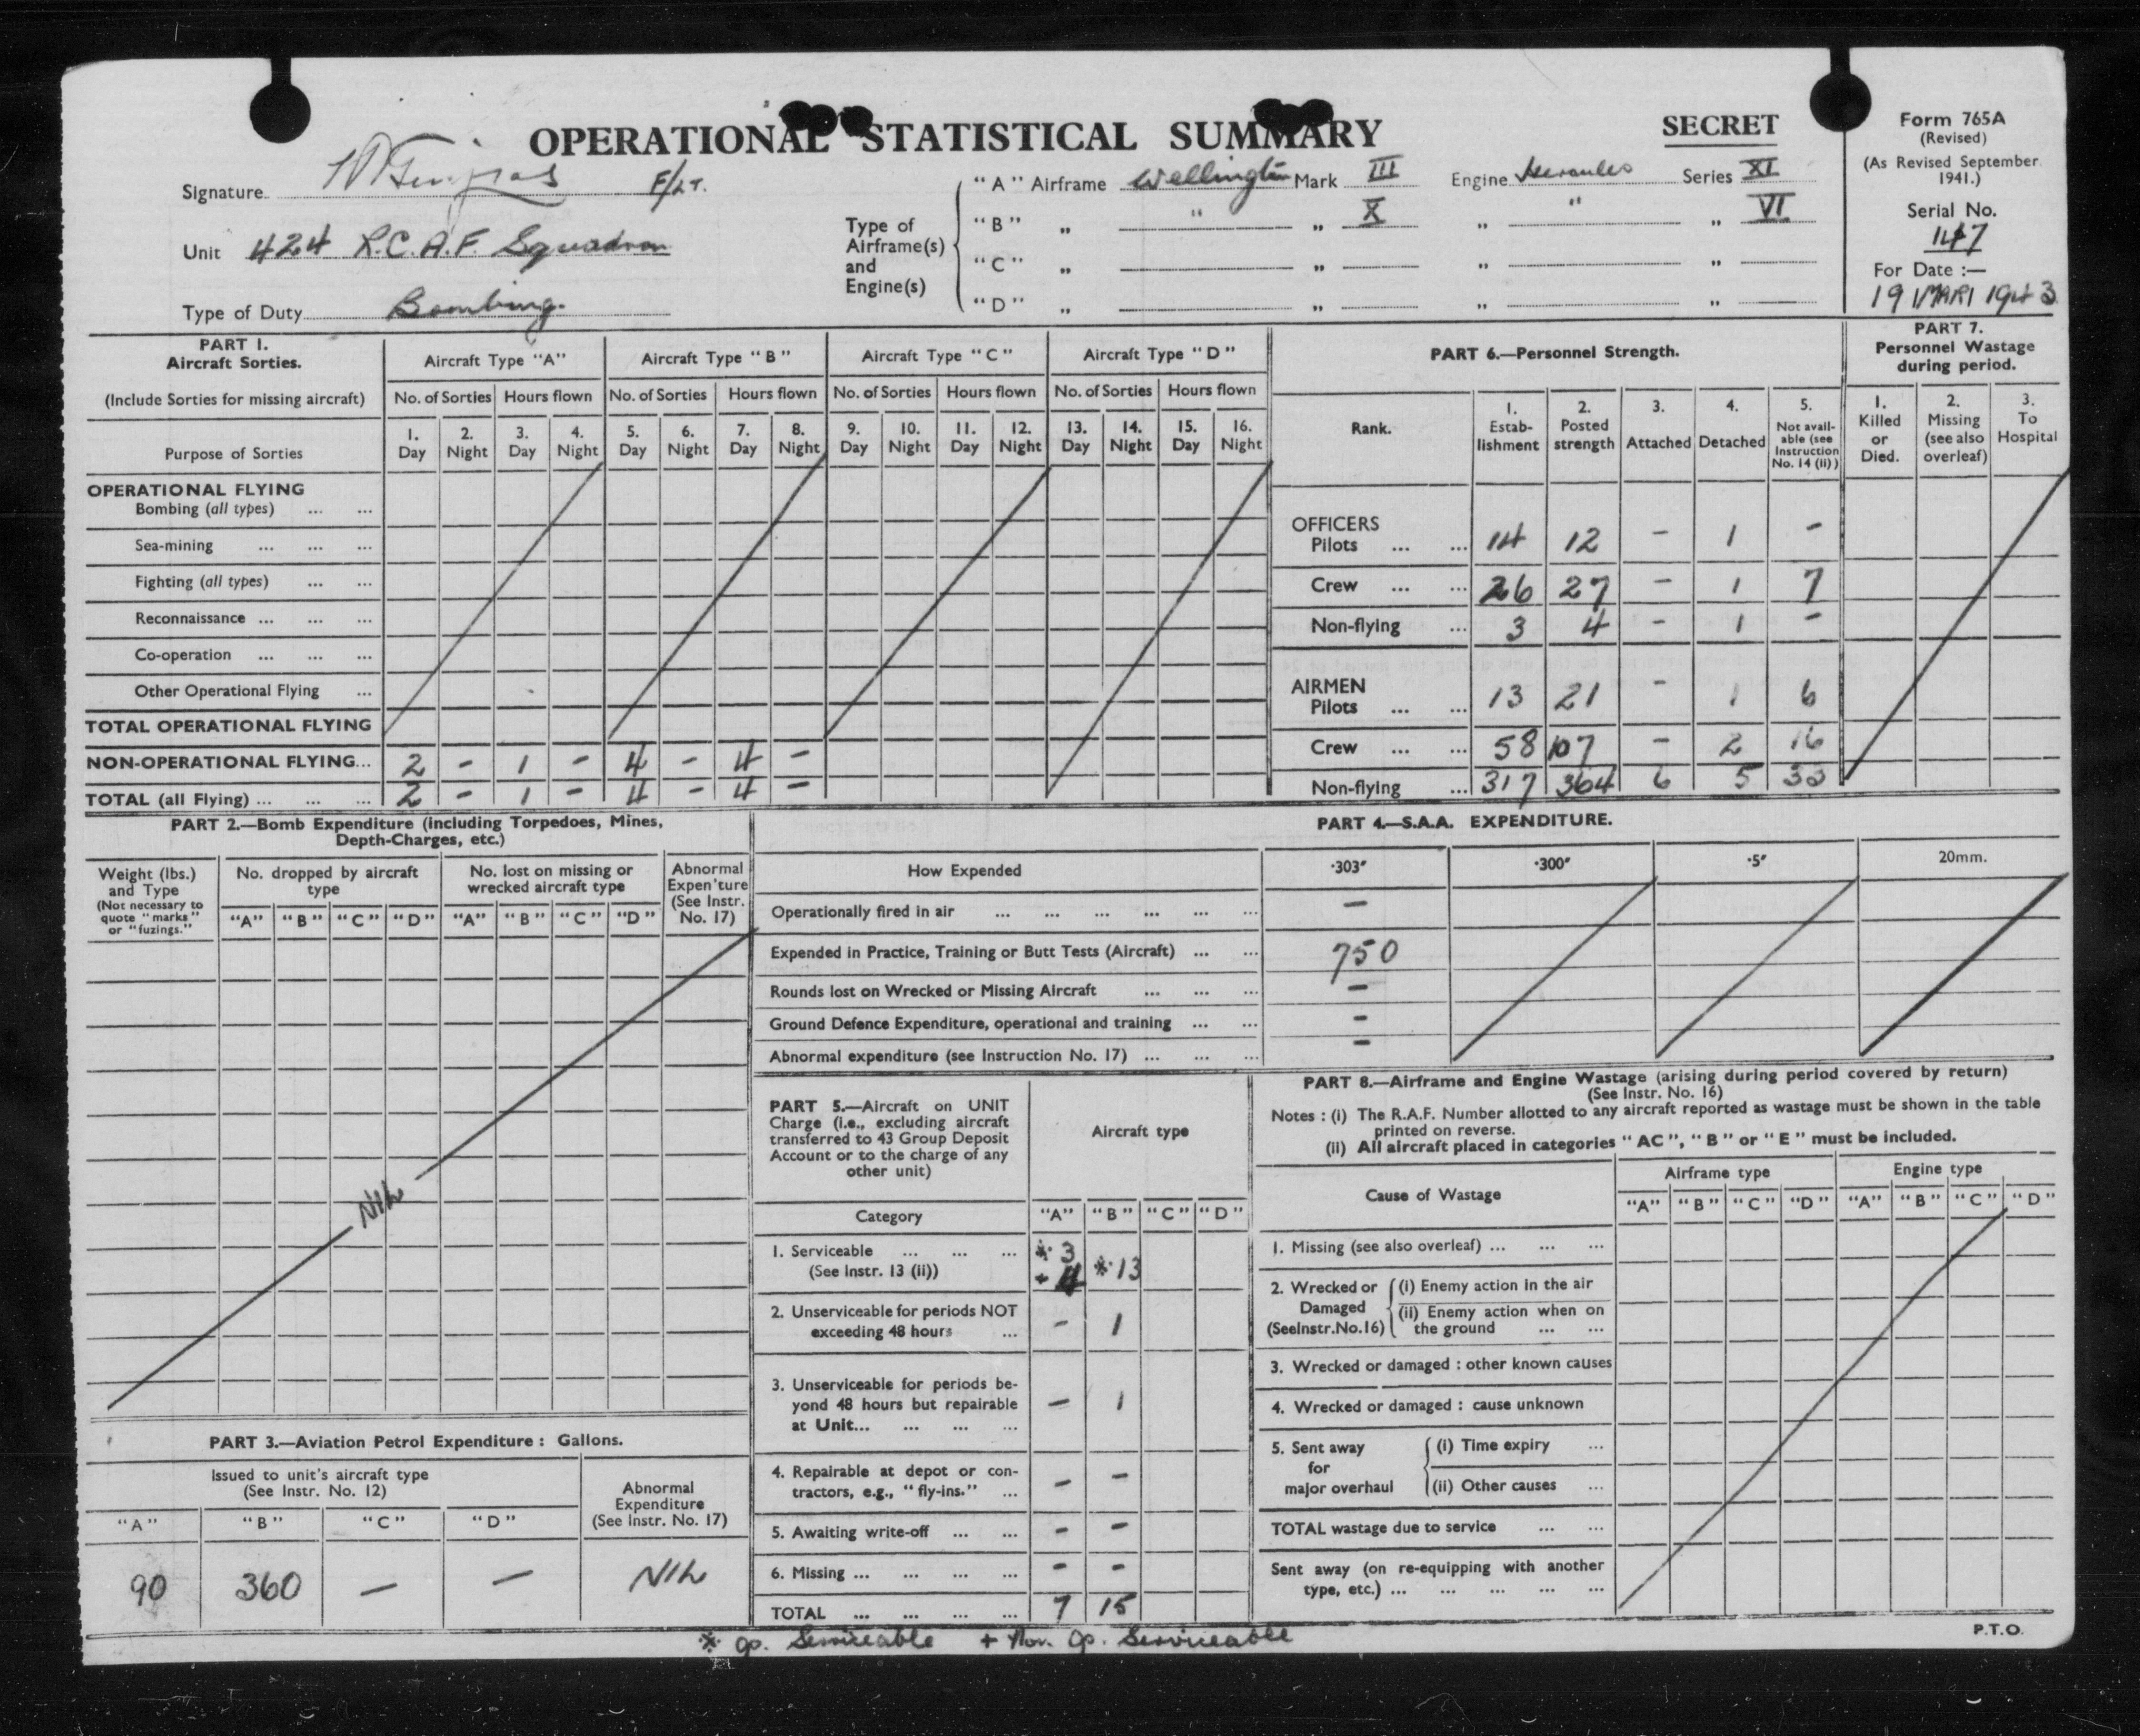 OPERATIONAL STATISTICAL SUMMARY
SECRET
Form 765A
(Revised)
(As Revised September 1941.)
Serial No.
147
For Date :—
19 MAR 1943
Signature F/LT.
Unit 424 R.C.A.F. Squadron
Type of Duty Bombing.
Type of Airframe(s) and Engine(s)
"A" Airframe Wellington Mark III Engine Hercules Series XI
"B" „ " „ X „ " „ VI
"C" „ „ „ „
"D" „ „ „ „
PART 1.
Aircraft Sorties.
(Include Sorties for missing aircraft)
Purpose of Sorties
Aircraft Type "A" Aircraft Type "B" Aircraft Type "C" Aircraft Type "D"
No. of Sorties Hours flown No. of Sorties Hours flown No. of Sorties Hours flown No. of Sorties Hours flown
1. 2. 3. 4. 5. 6. 7. 8. 9. 10. 11. 12. 13. 14. 15. 16.
Day Night Day Night Day Night Day Night Day Night Day Night Day Night Day Night
OPERATIONAL FLYING
Bombing (all types) ... ...
Sea-mining ... ... ...
Fighting (all types) ... ...
Reconnaissance ... ... ...
Co-operation ... ... ...
Other Operational Flying ...
TOTAL OPERATIONAL FLYING
NON-OPERATIONAL FLYING... 2 - 1 - 4 - 4 -
TOTAL (all Flying) ... ... ... 2 - 1 - 4 - 4 -
PART 6.—Personnel Strength.
Rank.
1. Estab-lishment
2. Posted strength
3. Attached
4. Detached
5. Not avail-able (see Instruction No. 14 (ii))
OFFICERS
Pilots ... ... 14 12 - 1 -
Crew ... ... 26 27 - 1 7
Non-flying ... 3 4 - 1 -
AIRMEN
Pilots ... ... 13 21 - 1 6
Crew ... ... 58 107 - 2 16
Non-flying ... 317 364 6 5
PART 7.
Personnel Wastage during period.
1. Killed or Died.
2. Missing (see also overleaf)
3. To Hospital
PART 2.—Bomb Expenditure (including Torpedoes, Mines,
Depth-Charges, etc.)
Weight (lbs.) and Type
(Not necessary to quote "marks" or "fuzings.")
No. dropped by aircraft type
No. lost on missing or wrecked aircraft type
Abnormal Expen'ture (See Instr. No. 17)
"A" "B" "C" "D" "A" "B" "C" "D"
NIL
PART 4.—S.A.A. EXPENDITURE.
How Expended ·303" ·300" ·5" 20mm.
Operationally fired in air ... ... ... ... ... ... -
Expended in Practice, Training or Butt Tests (Aircraft) ... ... 750
Rounds lost on Wrecked or Missing Aircraft ... ... ... -
Ground Defence Expenditure, operational and training ... ... -
Abnormal expenditure (see Instruction No. 17) ... ... ... -
PART 3.—Aviation Petrol Expenditure : Gallons.
Issued to unit's aircraft type
(See Instr. No. 12)
Abnormal Expenditure
(See Instr. No. 17)
"A" "B" "C" "D"
90 360 — — NIL
PART 5.—Aircraft on UNIT
Charge (i.e., excluding aircraft
transferred to 43 Group Deposit
Account or to the charge of any
other unit)
Aircraft type
Category "A" "B" "C" "D"
1. Serviceable ... ... ... * 3
(See Instr. 13 (ii)) + 4 * 13
2. Unserviceable for periods NOT
exceeding 48 hours ... - 1
3. Unserviceable for periods be-
yond 48 hours but repairable - 1
at Unit... ... ... ...
4. Repairable at depot or con-
tractors, e.g., "fly-ins." ... - -
5. Awaiting write-off ... ... - -
6. Missing ... ... ... ... - -
TOTAL ... ... ... ... 7 15
PART 8.—Airframe and Engine Wastage (arising during period covered by return)
(See Instr. No. 16)
Notes : (i) The R.A.F. Number allotted to any aircraft reported as wastage must be shown in the table
printed on reverse.
(ii) All aircraft placed in categories "AC", "B" or "E" must be included.
Cause of Wastage Airframe type Engine type
"A" "B" "C" "D" "A" "B" "C" "D"
1. Missing (see also overleaf) ... ... ...
2. Wrecked or Damaged (See Instr. No. 16)
(i) Enemy action in the air
(ii) Enemy action when on
the ground ... ...
3. Wrecked or damaged : other known causes
4. Wrecked or damaged : cause unknown
5. Sent away for major overhaul
(i) Time expiry ...
(ii) Other causes ...
TOTAL wastage due to service ... ...
Sent away (on re-equipping with another
type, etc.) ... ... ... ... ...
* Op. Serviceable + Non. Op. Serviceable
P.T.O.